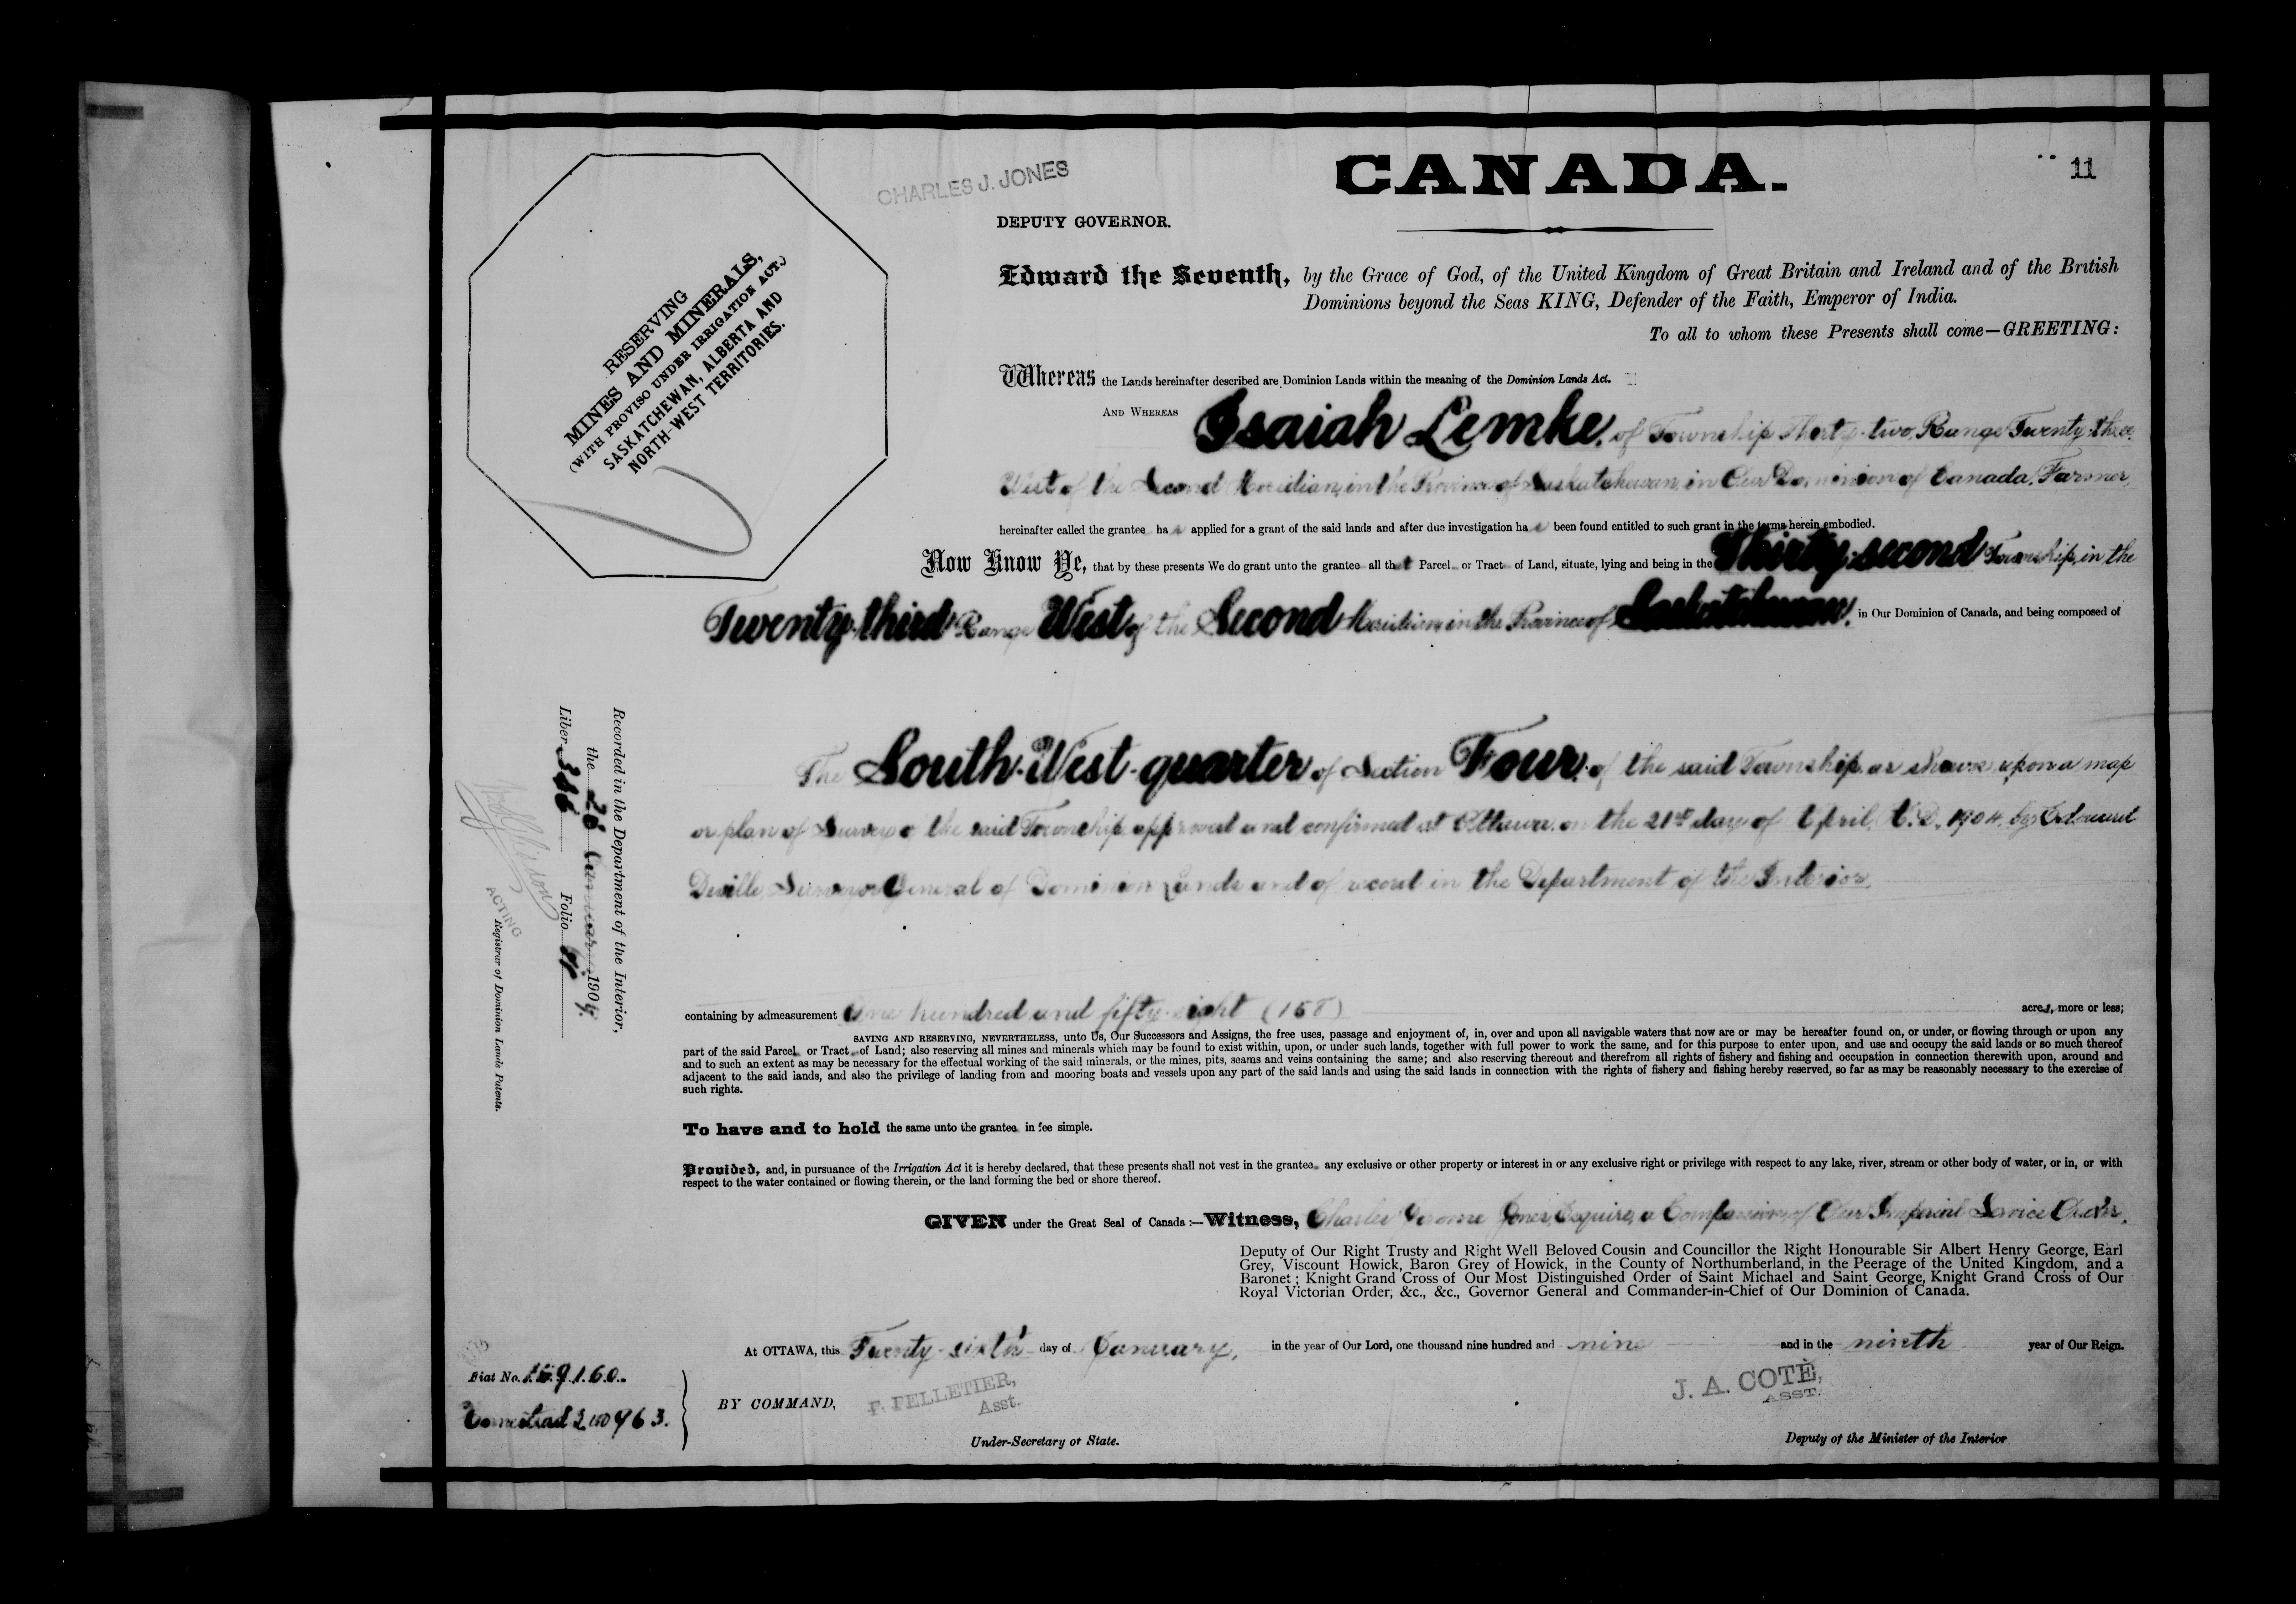 CHARLES J. JONES
CANADA.
11
DEPUTY GOVERNOR.
RESERVING
MINES AND MINERALS,
(WITH PROVISO UNDER IRRIGATION ACT.)
SASKATCHEWAN, ALBERTA AND
NORTH-WEST TERRITORIES.
Edward the Seventh, by the Grace of God, of the United Kingdom of Great Britain and Ireland and of the British
Dominions beyond the Seas KING, Defender of the Faith, Emperor of India.
To all to whom these Presents shall come—GREETING:
Whereas the Lands hereinafter described are Dominion Lands within the meaning of the Dominion Lands Act.
AND WHEREAS Isaiah Lemke, of Township Thirty-two, Range Twenty-three,
West of the Second Meridian, in the Province of Saskatchewan, in Our Dominion of Canada, Farmer,
hereinafter called the grantee has applied for a grant of the said lands and after due investigation has been found entitled to such grant in the terms herein embodied.
Now Know Ye, that by these presents We do grant unto the grantee all that Parcel or Tract of Land, situate, lying and being in the Thirty-second Township, in the
Twenty-third Range West of the Second Meridian, in the Province of Saskatchewan, in Our Dominion of Canada, and being composed of
The South-West-quarter of Section Four, of the said Township, as shown upon a map
or plan of Survey of the said Township, approved and confirmed at Ottawa, on the 21st day of April, A.D. 1904, by Edouard
Deville, Surveyor General of Dominion Lands and of record in the Department of the Interior,
containing by admeasurement One hundred and fifty-eight (158) acres, more or less;
SAVING AND RESERVING, NEVERTHELESS, unto Us, Our Successors and Assigns, the free uses, passage and enjoyment of, in, over and upon all navigable waters that now are or may be hereafter found on, or under, or flowing through or upon any
part of the said Parcel or Tract of Land; also reserving all mines and minerals which may be found to exist within, upon, or under such lands, together with full power to work the same, and for this purpose to enter upon, and use and occupy the said lands or so much thereof
and to such an extent as may be necessary for the effectual working of the said minerals, or the mines, pits, seams and veins containing the same; and also reserving thereout and therefrom all rights of fishery and fishing and occupation in connection therewith upon, around and
adjacent to the said lands, and also the privilege of landing from and mooring boats and vessels upon any part of the said lands and using the said lands in connection with the rights of fishery and fishing hereby reserved, so far as may be reasonably necessary to the exercise of
such rights.
To have and to hold the same unto the grantee in fee simple.
Provided, and, in pursuance of the Irrigation Act it is hereby declared, that these presents shall not vest in the grantee any exclusive or other property or interest in or any exclusive right or privilege with respect to any lake, river, stream or other body of water, or in, or with
respect to the water contained or flowing therein, or the land forming the bed or shore thereof.
GIVEN under the Great Seal of Canada:—Witness, Charles Jerome Jones, Esquire, a Companion of Our Imperial Service Order,
Deputy of Our Right Trusty and Right Well Beloved Cousin and Councillor the Right Honourable Sir Albert Henry George, Earl
Grey, Viscount Howick, Baron Grey of Howick, in the County of Northumberland, in the Peerage of the United Kingdom, and a
Baronet; Knight Grand Cross of Our Most Distinguished Order of Saint Michael and Saint George, Knight Grand Cross of Our
Royal Victorian Order, &c., &c., Governor General and Commander-in-Chief of Our Dominion of Canada.
At OTTAWA, this Twenty-sixth day of January, in the year of Our Lord, one thousand nine hundred and nine and in the ninth year of Our Reign.
BY COMMAND,
P. PELLETIER,
Asst.
Under-Secretary of State.
J. A. COTÉ,
ASST.
Deputy of the Minister of the Interior
Fiat No.
Homestead
Recorded in the Department of the Interior,
the 26 January 1909.
Liber Folio
ACTING
Registrar of Dominion Lands Patents.